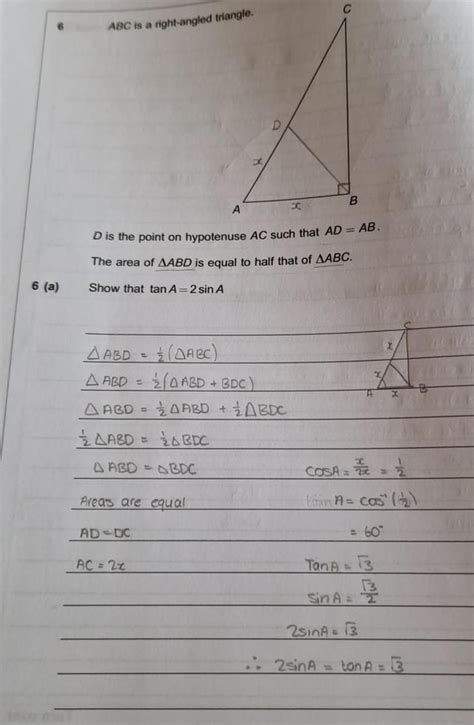 6 ABC is a right-angled triangle.
C
D
x
A
x
B
D is the point on hypotenuse AC such that AD = AB.
The area of ΔABD is equal to half that of ΔABC.
6 (a) Show that tan A = 2 sin A
C
x
x
A
x
B
△ABD = ½(△ABC)
△ABD = ½(△ABD + BDC)
△ABD = ½△ABD + ½△BDC
½△ABD = ½△BDC
△ABD = △BDC
Areas are equal
AD = DC
AC = 2x
COSA = x/2x = ½
A = cos⁻¹(½)
= 60°
TanA = √3
sinA = √3/2
2sinA = √3
∴ 2sinA = tanA = √3